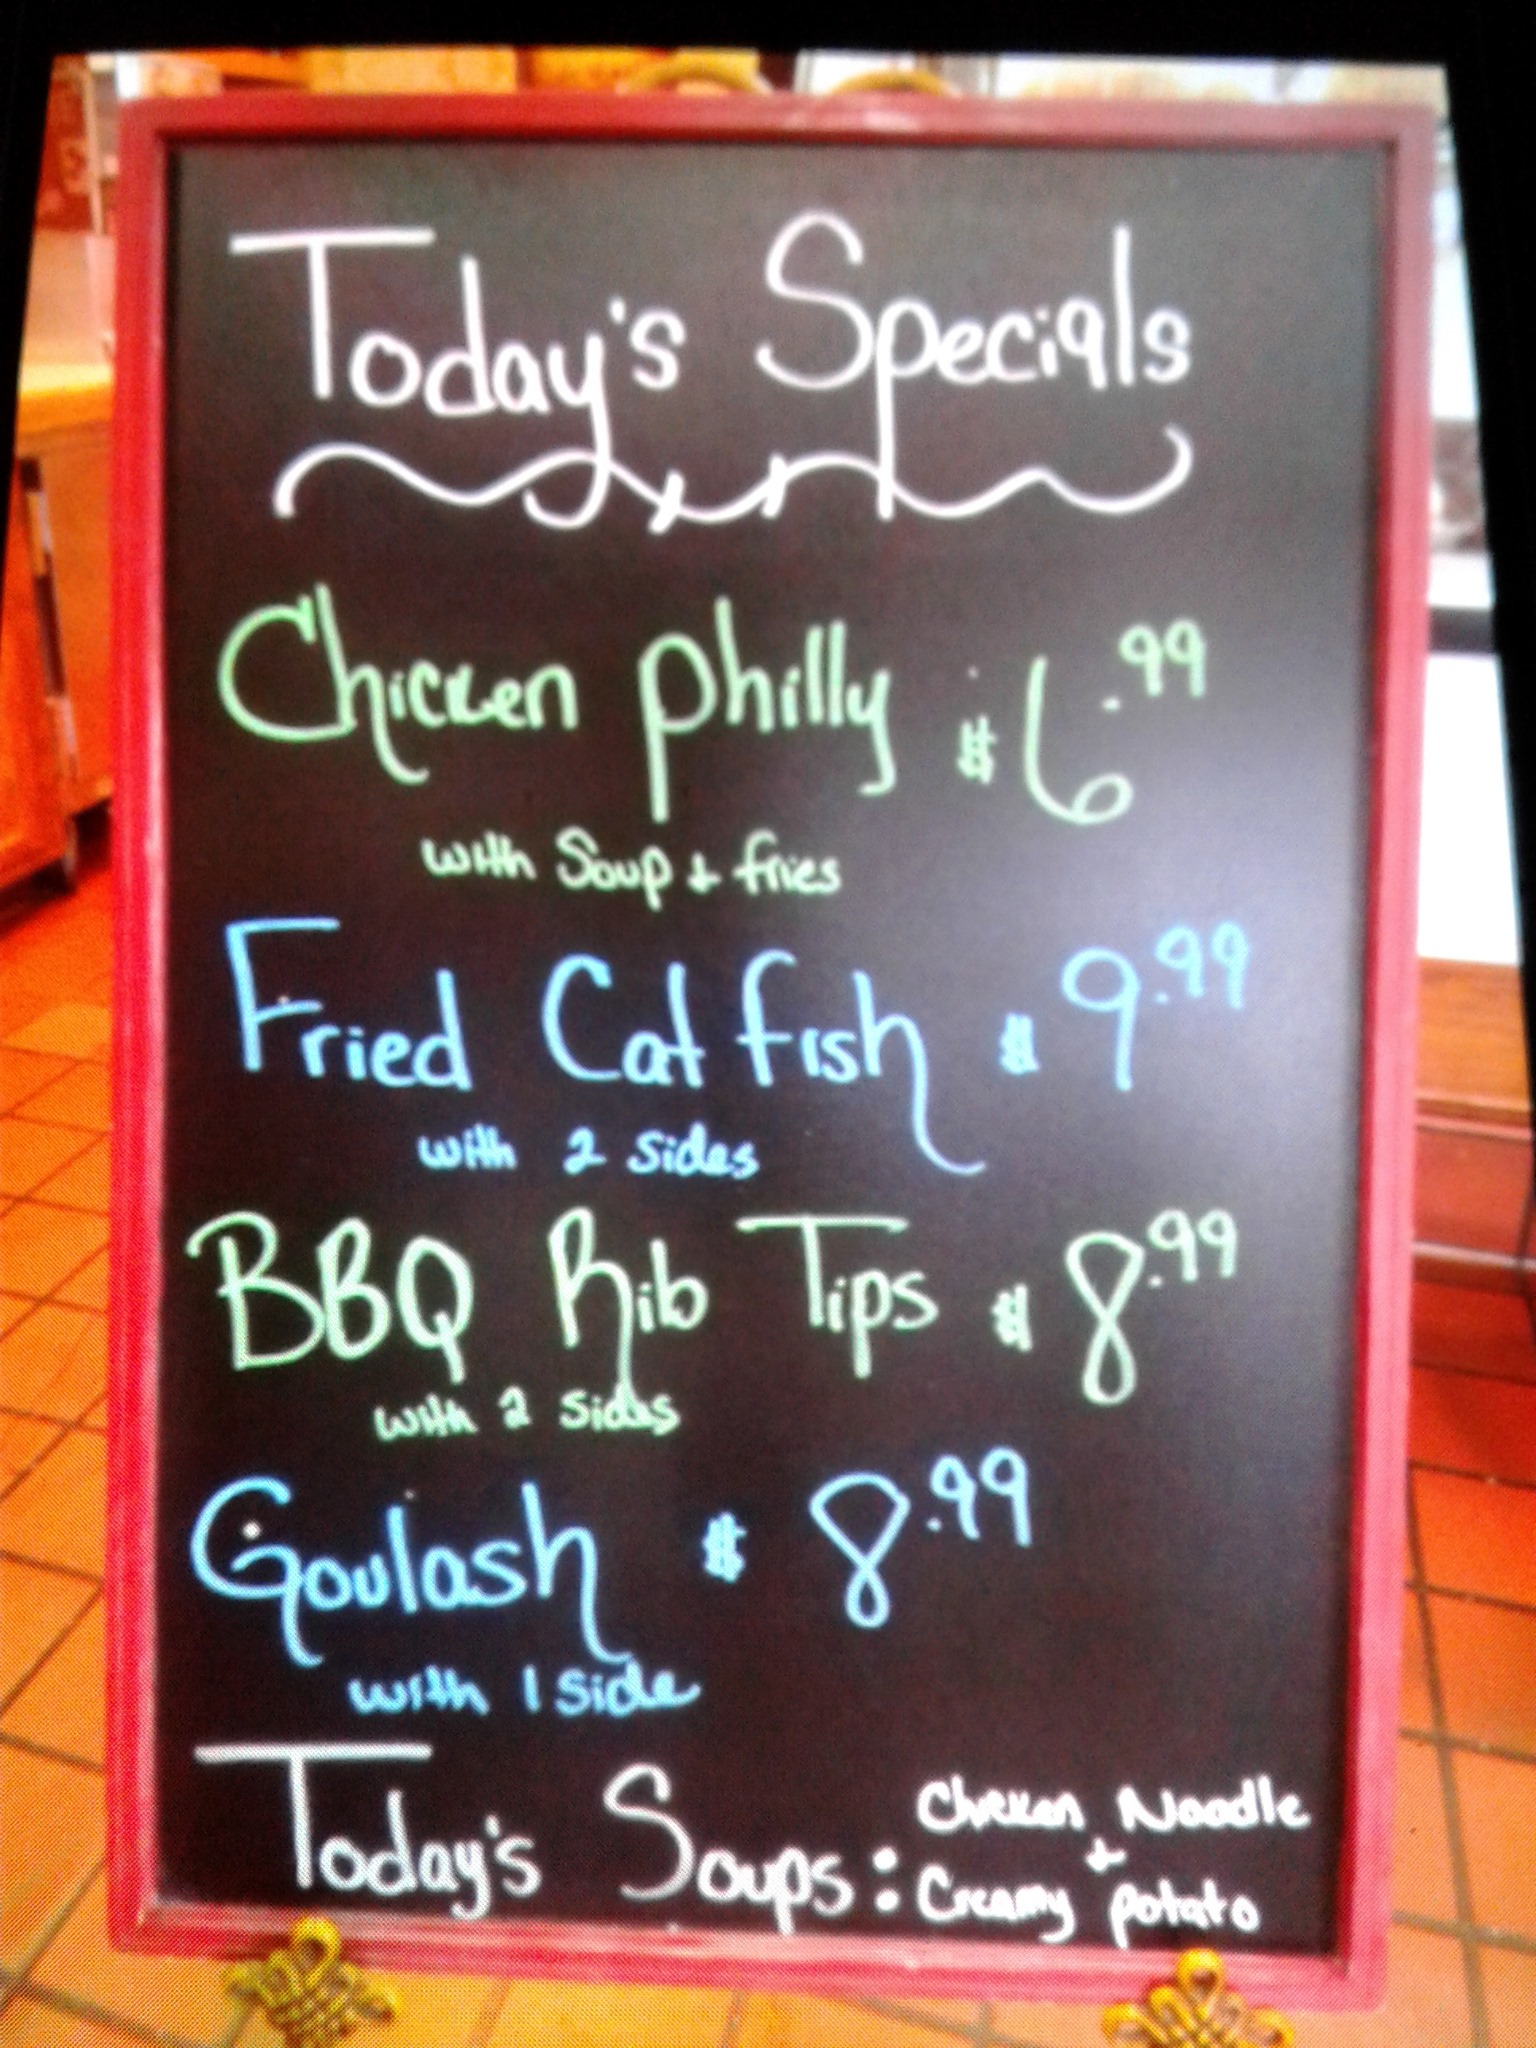 Today's Specials
Chicken Philly $6.99
with Soup & fries
Fried Cat fish $9.99
with 2 sides
BBQ Rib Tips $8.99
with 2 sides
Goulash $8.99
with 1 side
Today's Soups: Chicken Noodle
+
Creamy potato